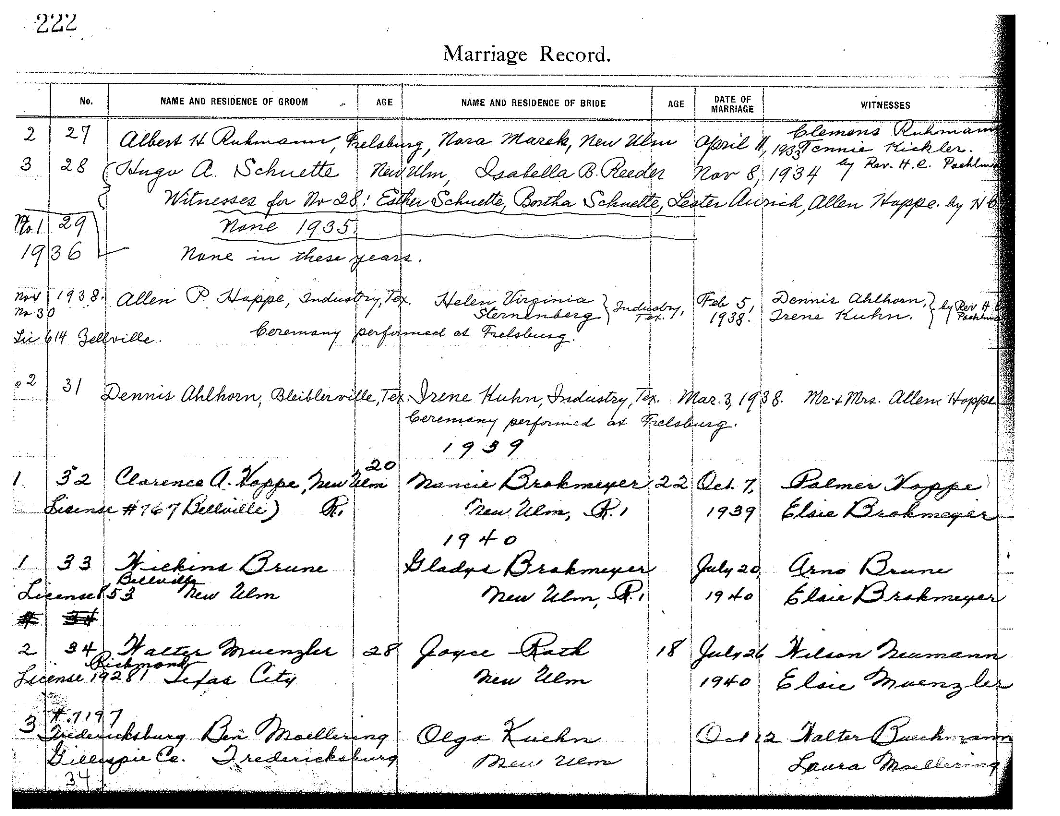 222
Marriage Record.
No. NAME AND RESIDENCE OF GROOM AGE NAME AND RESIDENCE OF BRIDE AGE DATE OF MARRIAGE WITNESSES
2 27 Albert H Ruhmann, Frelsburg, Nora Marek, New Ulm April 11, 1933 Clemens Ruhmann
Kickler.
3 28 Hugo A. Schuette New Ulm, Isabella B. Reeder Nov 8, 1934 by Rev. H. C.
Witnesses for No 28: Esther Schuette, Bertha Schuette, Lester Aurich, Allen Hoppe. by H C
No 1. 29 None 1935.
1936 None in these years.
1938. Allen P. Hoppe, Industry, Tex. Helen Virginia Feb 5, Dennis Ahlhorn,
No 30 Sternenberg Industry, Tex. 1938. Irene Kuhn. by Rev H C
Lic 614 Bellville. Ceremony performed at Frelsburg.
2 31 Dennis Ahlhorn, Bleiblerville, Tex. Irene Kuhn, Industry, Tex. Mar. 3, 1938. Mr. & Mrs. Allen Hoppe
Ceremony performed at Frelsburg.
1939
1 32 Clarence A. Hoppe, New Ulm 20 Nancie Brokmeyer 22 Oct. 7, Palmer Hoppe
License #767 Bellville) R1 New Ulm, R.1 1939 Elsie Brokmeyer
1940
1 33 Hickins Brune Gladys Brokmeyer July 20, Arno Brune
Bellville
License 853 New Ulm New Ulm, R.1 1940 Elsie Brokmeyer
# 34
2 34 Walter Muenzler 28 Joyce Rath 18 July 26 Wilson Neumann
Richmond
License 19281 Texas City New Ulm 1940 Elsie Muenzler
3 #7197
Fredericksburg Ben Moellering Olga Kuehn Oct 12 Walter Bueckmann
Gillespie Co. Fredericksburg New Ulm Laura Moellering
34